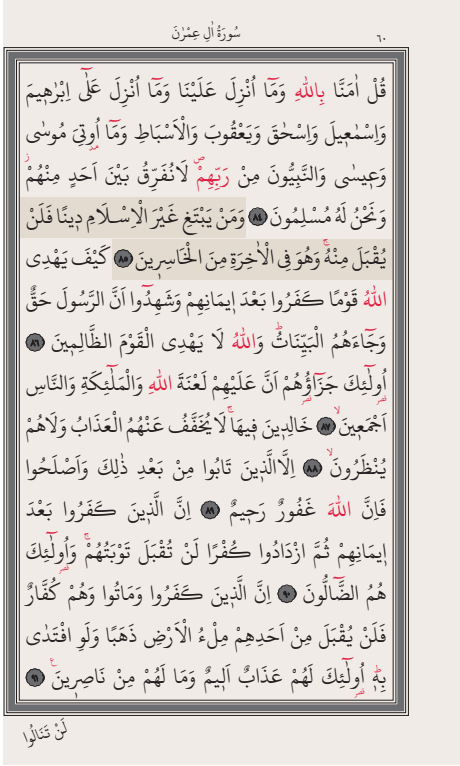 سُورَةُ اٰلِ عِمْرٰنَ ٦٠
قُلْ اٰمَنَّا بِاللّٰهِ وَمَٓا اُنْزِلَ عَلَيْنَا وَمَٓا اُنْزِلَ عَلٰٓى اِبْرٰه۪يمَ
وَاِسْمٰع۪يلَ وَاِسْحٰقَ وَيَعْقُوبَ وَالْاَسْبَاطِ وَمَٓا اُو۫تِيَ مُوسٰى
وَع۪يسٰى وَالنَّبِيُّونَ مِنْ رَبِّهِمْۖ لَانُفَرِّقُ بَيْنَ اَحَدٍ مِنْهُمْۘ
وَنَحْنُ لَهُ مُسْلِمُونَ ﴿٨٤﴾ وَمَنْ يَبْتَغِ غَيْرَ الْاِسْلَامِ د۪ينًا فَلَنْ
يُقْبَلَ مِنْهُۚ وَهُوَ فِي الْاٰخِرَةِ مِنَ الْخَاسِر۪ينَ ﴿٨٥﴾ كَيْفَ يَهْدِي
اللّٰهُ قَوْمًا كَفَرُوا بَعْدَ ا۪يمَانِهِمْ وَشَهِدُٓوا اَنَّ الرَّسُولَ حَقٌّ
وَجَٓاءَهُمُ الْبَيِّنَاتُۜ وَاللّٰهُ لَا يَهْدِي الْقَوْمَ الظَّالِم۪ينَ ﴿٨٦﴾
اُو۬لٰٓئِكَ جَزَٓاؤُ۬هُمْ اَنَّ عَلَيْهِمْ لَعْنَةَ اللّٰهِ وَالْمَلٰٓئِكَةِ وَالنَّاسِ
اَجْمَع۪ينَۙ ﴿٨٧﴾ خَالِد۪ينَ ف۪يهَاۚ لَايُخَفَّفُ عَنْهُمُ الْعَذَابُ وَلَاهُمْ
يُنْظَرُونَۙ ﴿٨٨﴾ اِلَّاالَّذ۪ينَ تَابُوا مِنْ بَعْدِ ذٰلِكَ وَاَصْلَحُوا
فَاِنَّ اللّٰهَ غَفُورٌ رَح۪يمٌ ﴿٨٩﴾ اِنَّ الَّذ۪ينَ كَفَرُوا بَعْدَ
ا۪يمَانِهِمْ ثُمَّ ازْدَادُوا كُفْرًا لَنْ تُقْبَلَ تَوْبَتُهُمْۚ وَاُو۬لٰٓئِكَ
هُمُ الضَّٓالُّونَ ﴿٩٠﴾ اِنَّ الَّذ۪ينَ كَفَرُوا وَمَاتُوا وَهُمْ كُفَّارٌ
فَلَنْ يُقْبَلَ مِنْ اَحَدِهِمْ مِلْءُ الْاَرْضِ ذَهَبًا وَلَوِ افْتَدٰى
بِه۪ۜ اُو۬لٰٓئِكَ لَهُمْ عَذَابٌ اَل۪يمٌ وَمَا لَهُمْ مِنْ نَاصِر۪ينَ۟ ﴿٩١﴾
لَنْ تَنَالُوا